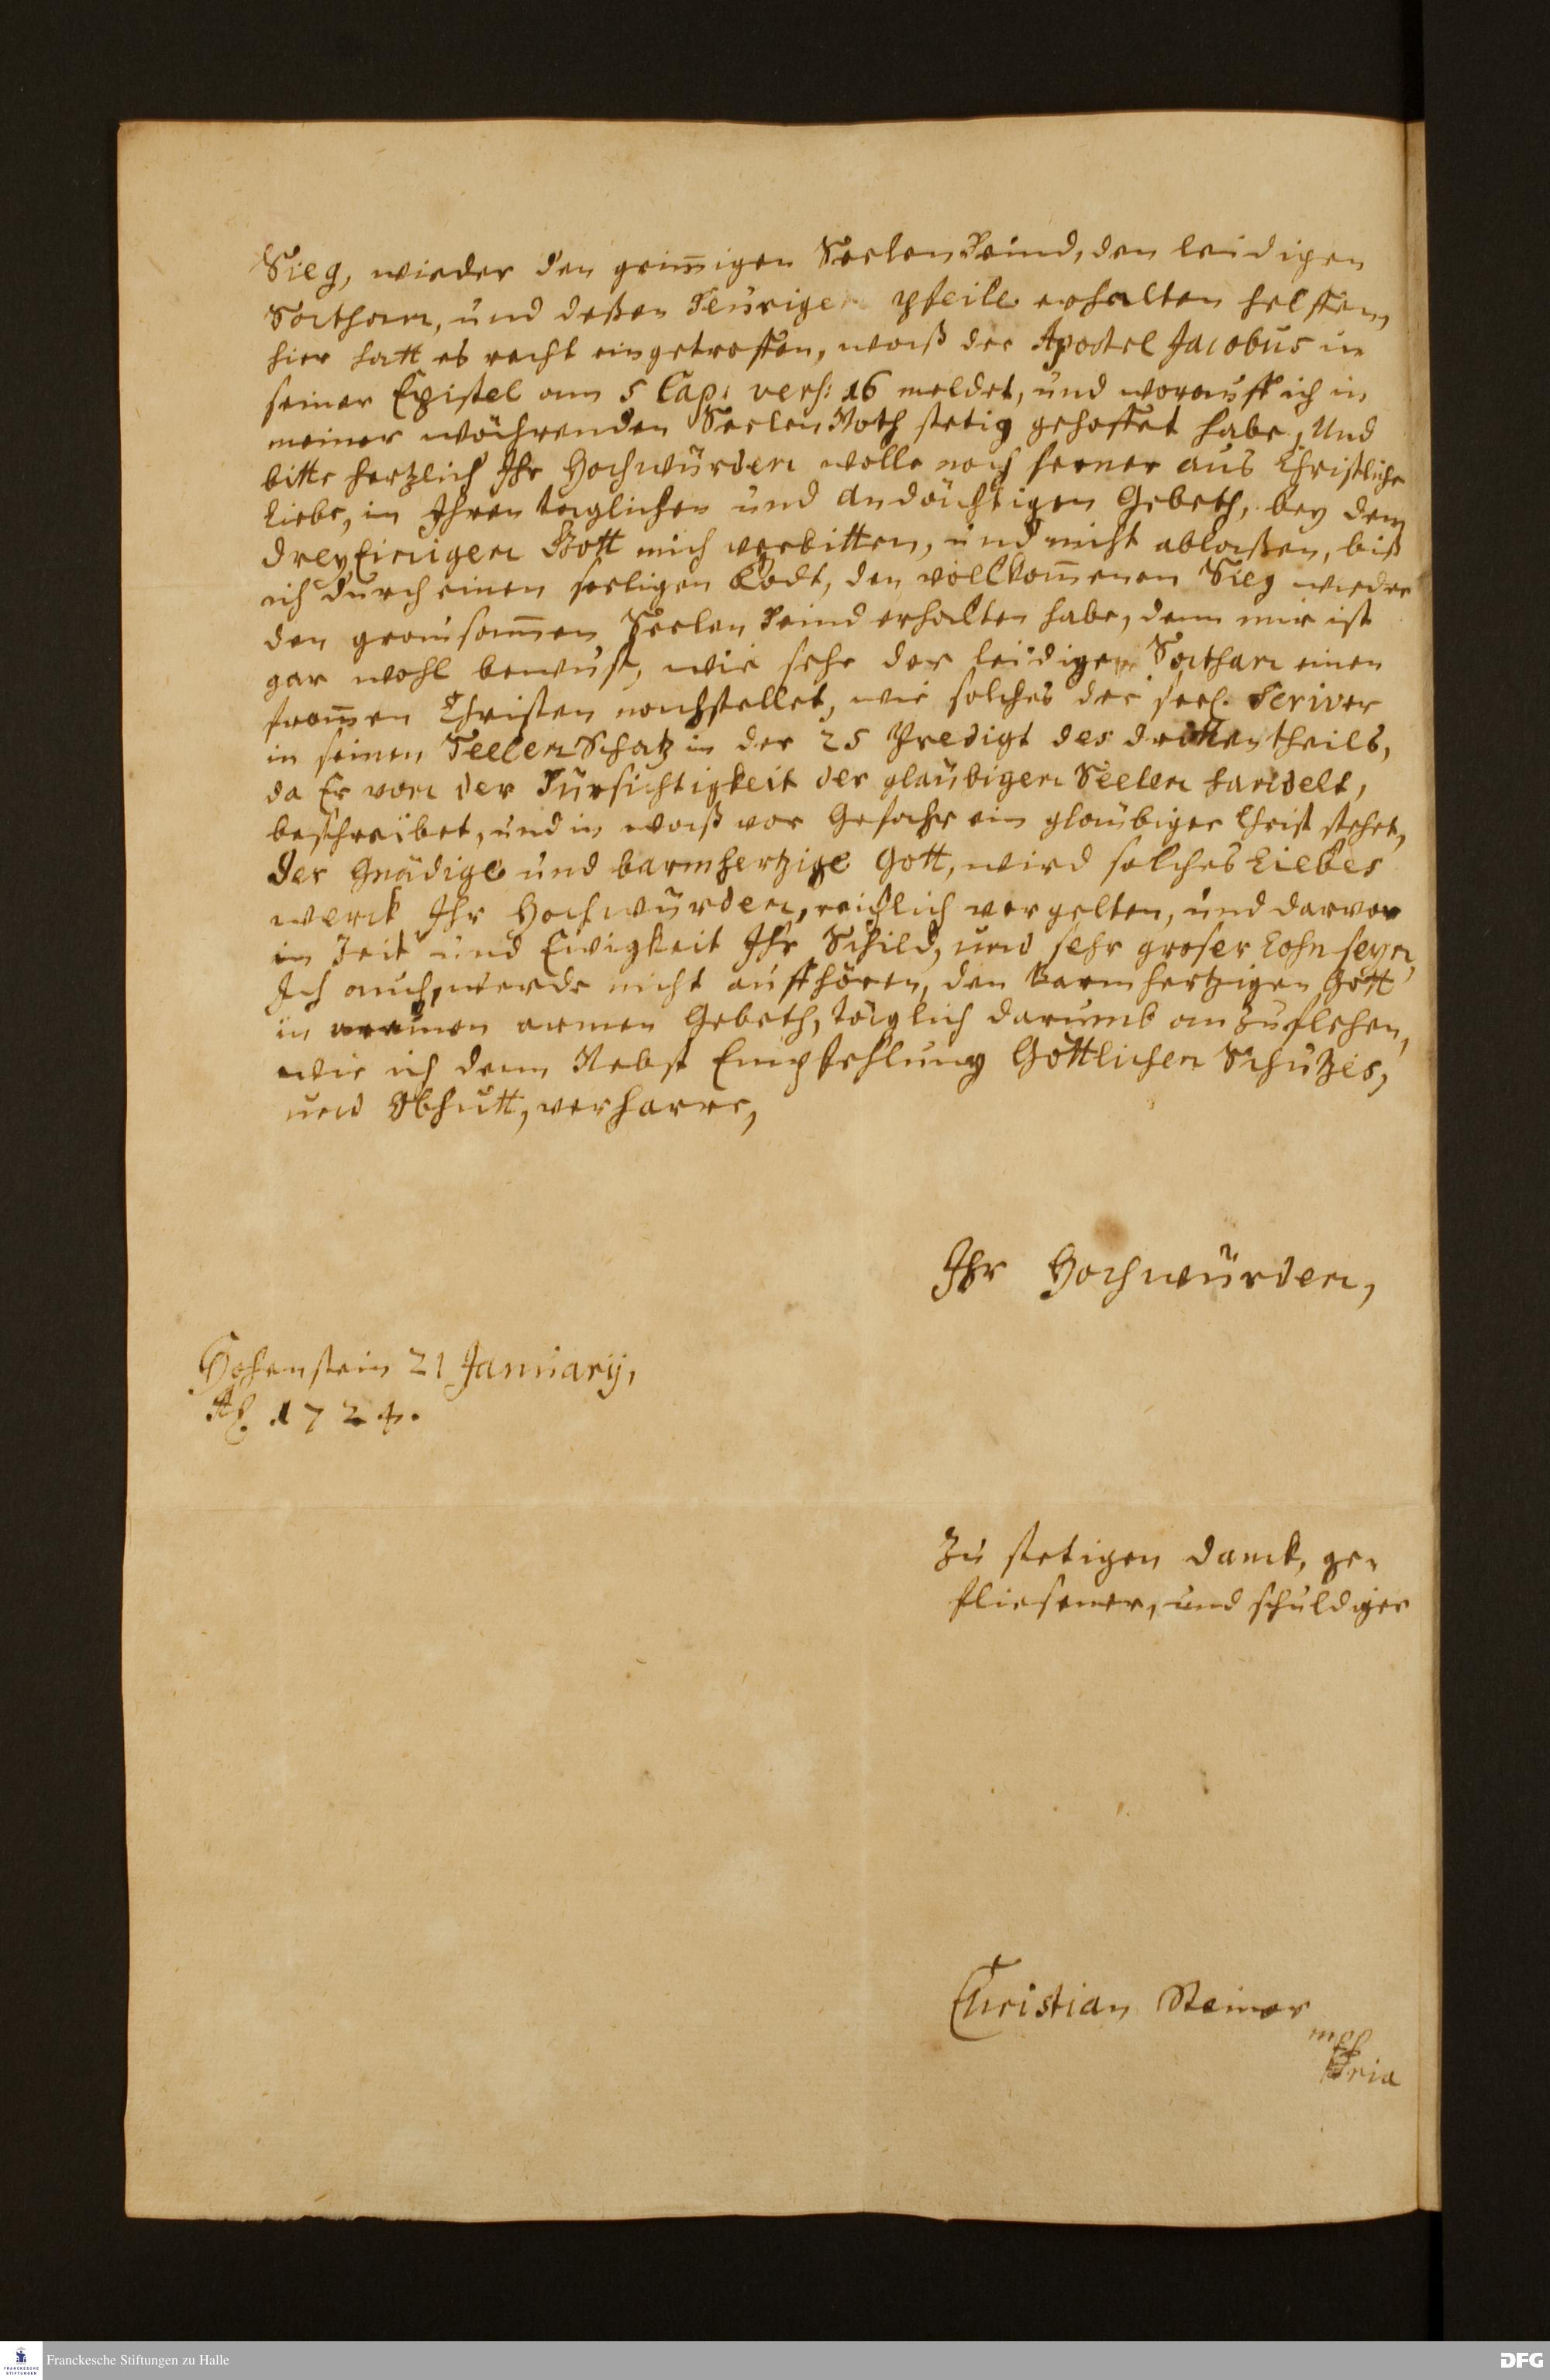 Sieg, wieder den grim̅igen Seelen Feind, den leidigen
Sathan, und deßen Feurige pfeile erhalten helffen,
hier hatt es recht eingetroffen, waß der Apostel Jacobus in
seiner Epistel am 5 Cap: vers: 16 meldet, und worauff ich in
meiner währenden Seelen Noth stetig gehoffet habe, Und
bitte hertzlich Ihr Hochwürden wolle noch ferner aus Christlicher
Liebe, in Ihren täglichen und andächtigen Gebeth, bey dem
dreyEinigen Gott mich verbitten, und nicht ablaßen, biß
ich durch einen seeligen Todt, den vollkom̅enen Sieg wieder
den grausam̅en Seelen Feind erhalten habe, denn mir ist
gar wohl bewust, wie sehr der leidige Sathan einen
from̅en Christen nachstellet, wie solches der seel. Scriver
in seinen Seelen Schatz in der 25 Predigt des dritten theils,
da Er von der Fürsichtigkeit der gläubigen Seelen handelt,
beschreibet, und in waß vor Gefahr ein gläubiger Christ stehet,
der Gnädige und barmhertzige Gott, wird solches Liebes
werck Ihr Hochwürden, reichlich vergelten, und darvor
in Zeit und Ewigkeit Ihr Schild, und sehr groser Lohn seyn,
Ich auch, werde nicht auffhören, den barmhertzigen Gott
in meinen armen Gebeth, täglich darumb an Zuflehen,
wie ich denn Nebst Empfehlung Göttlichen Schutzes,
und Obhutt, verharre,
Ihr Hochwürden,
Hohenstein 21 January,
Aō. 1724.
Zu stetigen danck, ge-
fliesener, und schuldiger
Christian Steiner
mpp
Franckesche Stiftungen zu Halle
FRANCKESCHE
STIFTUNGEN
DFG